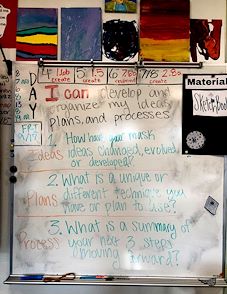 DAY
4 Job create
5 1.5 create
6 7.8a respond
7/8 2.8a create
Material
Sketchbook
I can develop and
organize my ideas,
plans, and processes
FRI
1. How have your mask
Ideas ideas changed, evolved
or developed?
2. What is a unique or
Plans different technique you
have or plan to use?
3. What is a summary of
Process your next 3 steps
moving forward?